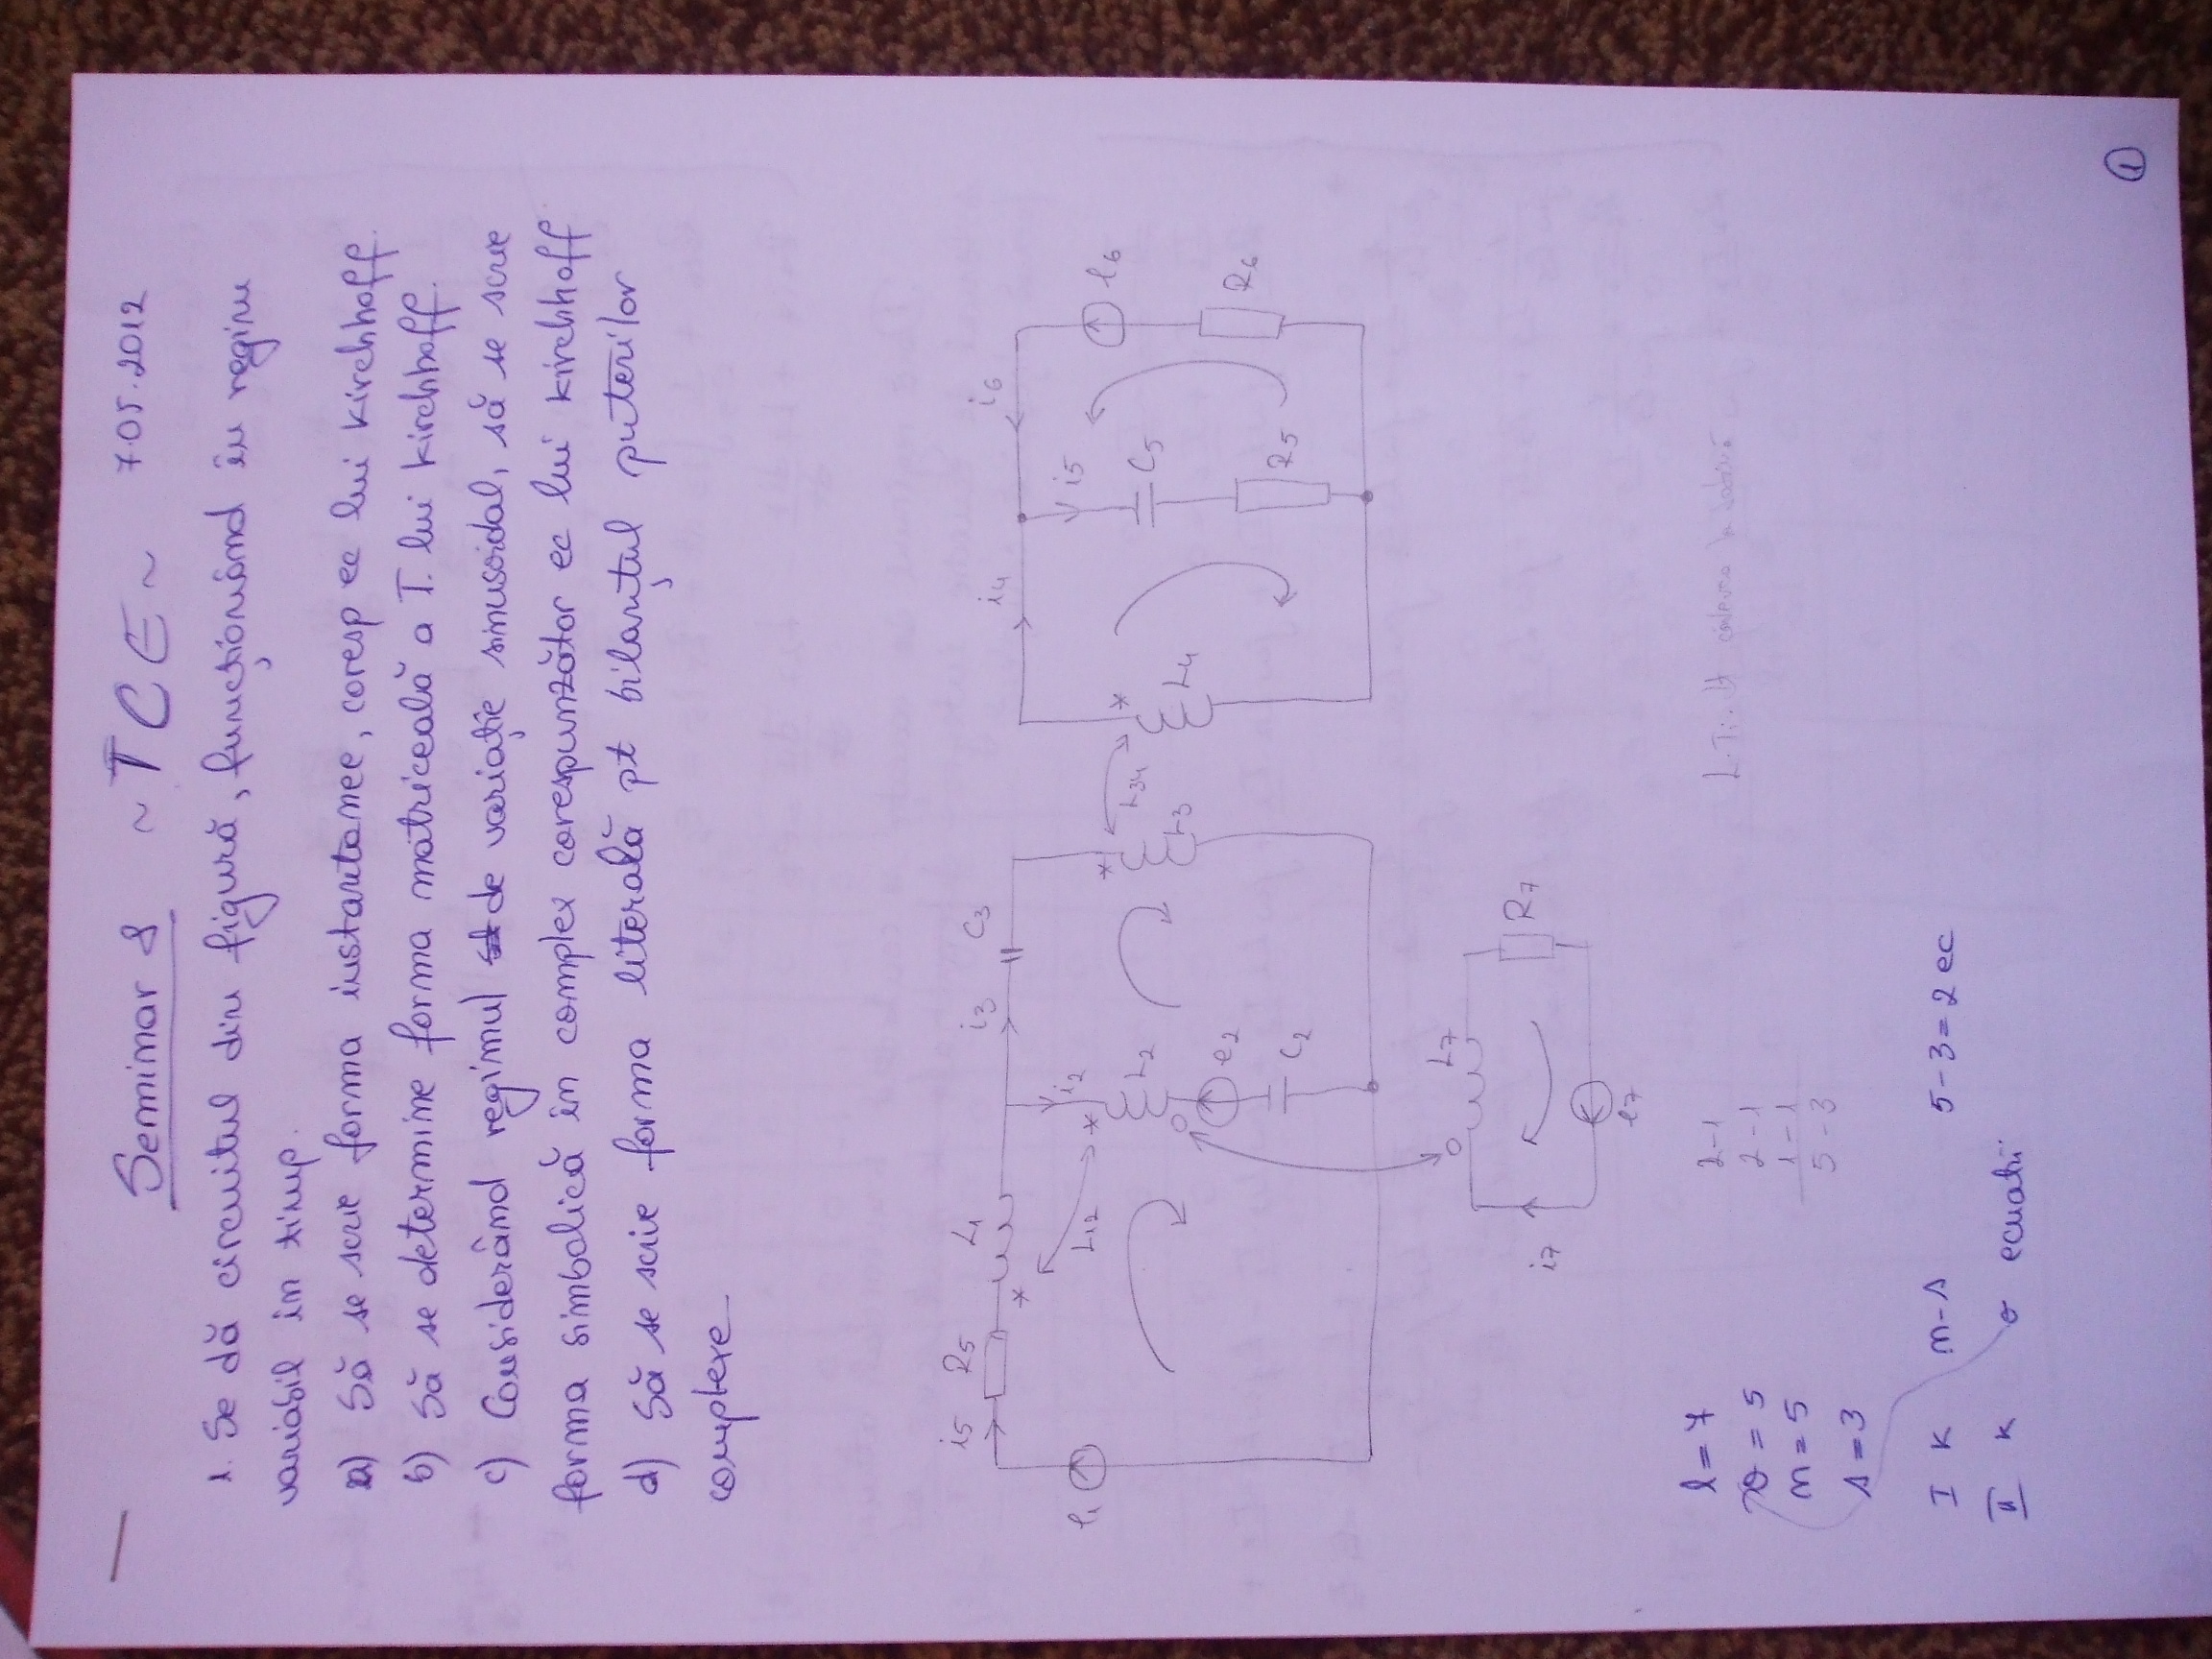 Seminar 8 ~TCE~ 7.05.2012
1. Se dă circuitul din figură, funcționând în regim
variabil în timp.
a) Să se scrie forma instantanee, coresp ec lui Kirchhoff.
b) Să se determine forma matriceală a T. lui Kirchhoff.
c) Considerând regimul de variație sinusoidal, să se scrie
forma simbolică în complex corespunzător ec lui Kirchhoff
d) Să se scrie forma literală pt bilanțul puterilor
complexe
i5 R5 L1 i3 C3 i4 i6
e1 * L12 * i2 * L34 * i5 e6
L2 L3 L4 C5
e2 R6
C2 R5
L7
i7 R7
e7
l = 7 2-1
o = 5 2-1
n = 5 1-1
5-3
s = 3
I K n-s 5-3=2 ec
II K o ecuații
1